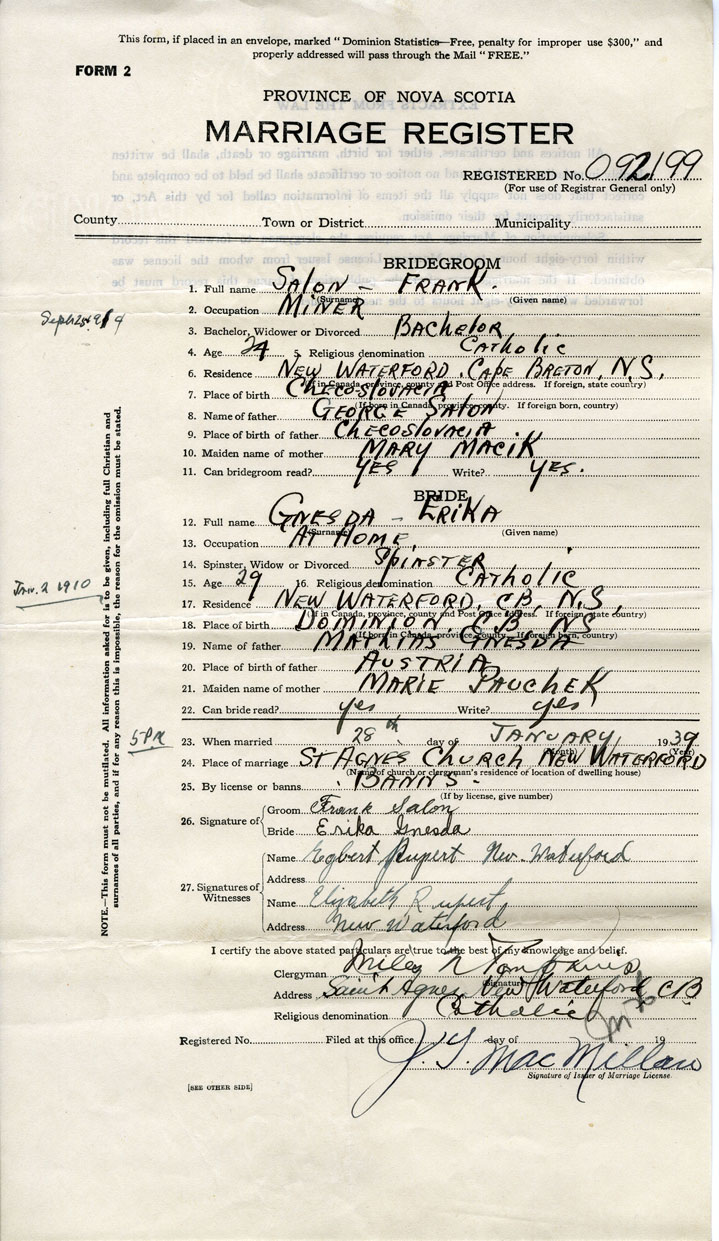 This form, if placed in an envelope, marked "Dominion Statistics—Free, penalty for improper use $300," and
properly addressed will pass through the Mail "FREE."
FORM 2
PROVINCE OF NOVA SCOTIA
MARRIAGE REGISTER
REGISTERED No. 092199
(For use of Registrar General only)
County Town or District Municipality
BRIDEGROOM
1. Full name SALON – FRANK.
(Surname) (Given name)
2. Occupation MINER
3. Bachelor, Widower or Divorced BACHELOR
4. Age 24 5. Religious denomination CATHOLIC
6. Residence NEW WATERFORD. CAPE BRETON, N.S,
(If in Canada, province, county and Post Office address. If foreign, state country)
7. Place of birth CHECOSLOVACIA
(If born in Canada, province, county. If foreign born, country)
8. Name of father GEORGE SALON
9. Place of birth of father CHECOSLOVACIA
10. Maiden name of mother MARY MACIK
11. Can bridegroom read? YES Write? YES.
BRIDE
12. Full name GNESDA – ERIKA
(Surname) (Given name)
13. Occupation AT HOME,
14. Spinster, Widow or Divorced SPINSTER
15. Age 29 16. Religious denomination CATHOLIC
17. Residence NEW WATERFORD, C.B, N.S,
(If in Canada, province, county and Post Office address. If foreign state country)
18. Place of birth DOMINION, C.B. NS
(If born in Canada, province, county. If foreign born, country)
19. Name of father MATHIAS GNESDA
20. Place of birth of father AUSTRIA,
21. Maiden name of mother MARIE PAUCHEK
22. Can bride read? yes Write? yes
5 PM
23. When married 28th day of JANUARY 1939
(Month) (Year)
24. Place of marriage ST AGNES CHURCH NEW WATERFORD
(Name of church or clergyman's residence or location of dwelling house)
25. By license or banns BANNS
(If by license, give number)
26. Signature of
Groom Frank Salon
Bride Erika Gnesda
27. Signatures of Witnesses
Name Egbert Rupert New Waterford
Address
Name Elizabeth Rupert
Address New Waterford
I certify the above stated particulars are true to the best of my knowledge and belief.
Clergyman Miley N Tompkins
(Signature)
Address Saint Agnes New Waterford CB
Religious denomination Catholic
Registered No. Filed at this office day of 19
J. G. MacMillan
Signature of Issuer of Marriage License
[SEE OTHER SIDE]
NOTE.—This form must not be mutilated. All information asked for is to be given, including full Christian and
surnames of all parties, and if for any reason this is impossible, the reason for the omission must be stated.
Jan. 2 1910